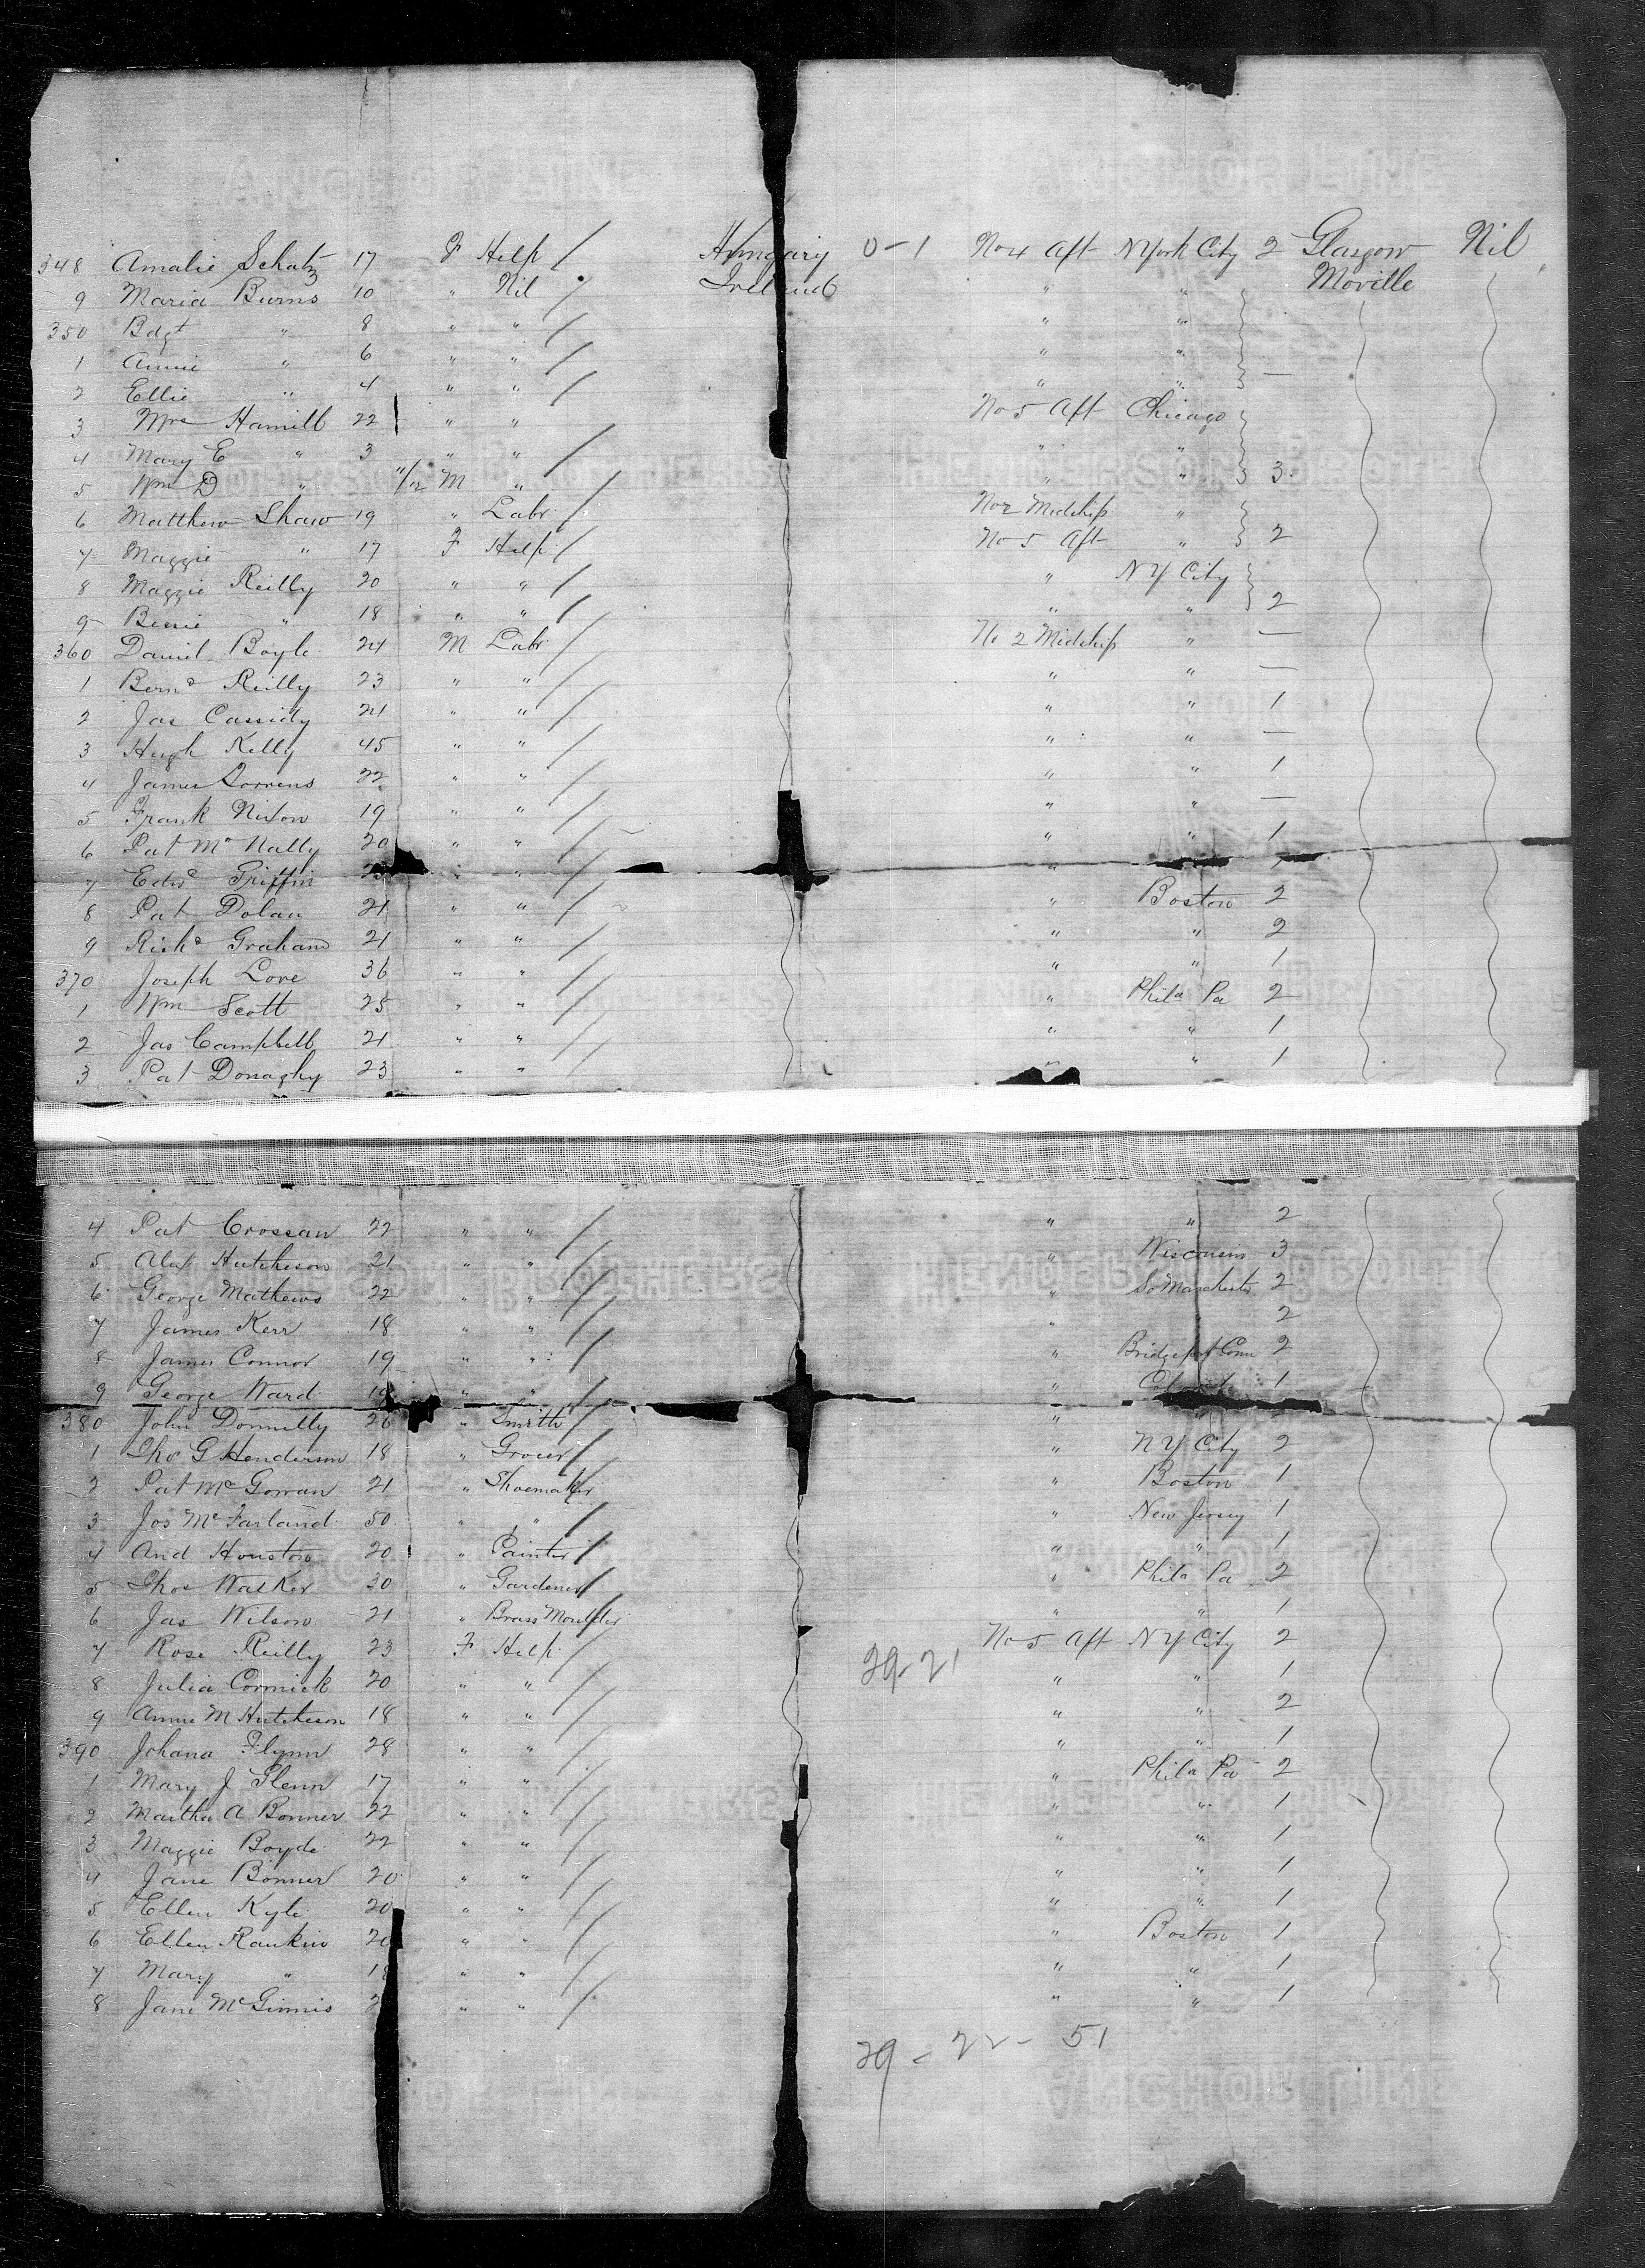 348 Amalie Schatz 17 F Help / Hungary 0-1 No 4 Aft N York City 2 Glasgow Nil
9 Maria Burns 10 " Nil / Ireland " " Moville
350 Bdgt " 8 " " / " "
1 Annie " 6 " " / " "
2 Ellie " 4 " " / " " —
3 Mrs Hamill 22 " " No 5 Aft Chicago
4 Mary E " 3 " " / " "
5 Wm D " 11/12 M " / " " 3
6 Matthew Shaw 19 " Labr / No 2 Midship "
7 Maggie " 17 F Help / No 5 Aft " 2
8 Maggie Reilly 20 " " / " NY City
9 " 18 " " / " " 2
360 Daniel Boyle 24 M Labr / No 2 Midship " —
1 Bernd Reilly 23 " " / " " —
2 Jas Cassidy 24 " " / " " 1
3 Hugh Kelly 45 " " / " " —
4 James Torrens 22 " " / " " 1
5 Frank Nixon 19 " " / " " —
6 Pat McNally 20 " " / " " 1
7 Edwd Griffin " " / " 1
8 Pat Dolan 21 " " / " Boston 2
9 Richd Graham 21 " " / " " 2
370 Joseph Love 36 " " / " " 1
1 Wm Scott 25 " " / " Phila Pa 2
2 Jas Campbell 21 " " / " " 1
3 Pat Donaghy 23 " " / " " 1
4 Pat Crossan 22 " " / " " 2
5 Alex Hutcheson 21 " " / " Wisconsin 3
6 George Mathews 22 " " / " So Manchester 2
7 James Kerr 18 " " / " 2
8 James Connor 19 " " / " Bridgeport Conn 2
9 George Ward 19 " " / " 1
380 John Donnelly 26 " Smith / " "
1 Tho G Henderson 18 " Grocer / " NY City 2
2 Pat McGowan 21 " Shoemaker / " Boston 1
3 Jos McFarland 50 " " / " New Jersey 1
4 And Houston 20 " Painter / " " 1
5 Thos Walker 30 " Gardener / " Phila Pa 2
6 Jas Wilson 21 " Brass Moulder " " 1
7 Rose Reilly 23 F Help / 29-21 No 5 Aft NY City 2
8 Julia Cormick 20 " " / " " 1
9 Annie M Hutcheson 18 " " / " " 2
390 Johana Flynn 28 " " / " " 1
1 Mary J Glenn 17 " " / " Phila Pa 2
2 Martha A Bonner 22 " " / " " 1
3 Maggie Boyde 22 " " / " " 1
4 Jane Bonner 20 " " / " " 1
5 Ellen Kyle 20 " " / " " 1
6 Ellen Rankin 20 " " / " Boston 1
7 Mary " 18 " " / " " 1
8 Jane McGinnis 2 " " / " " 1
29 - 22 - 51